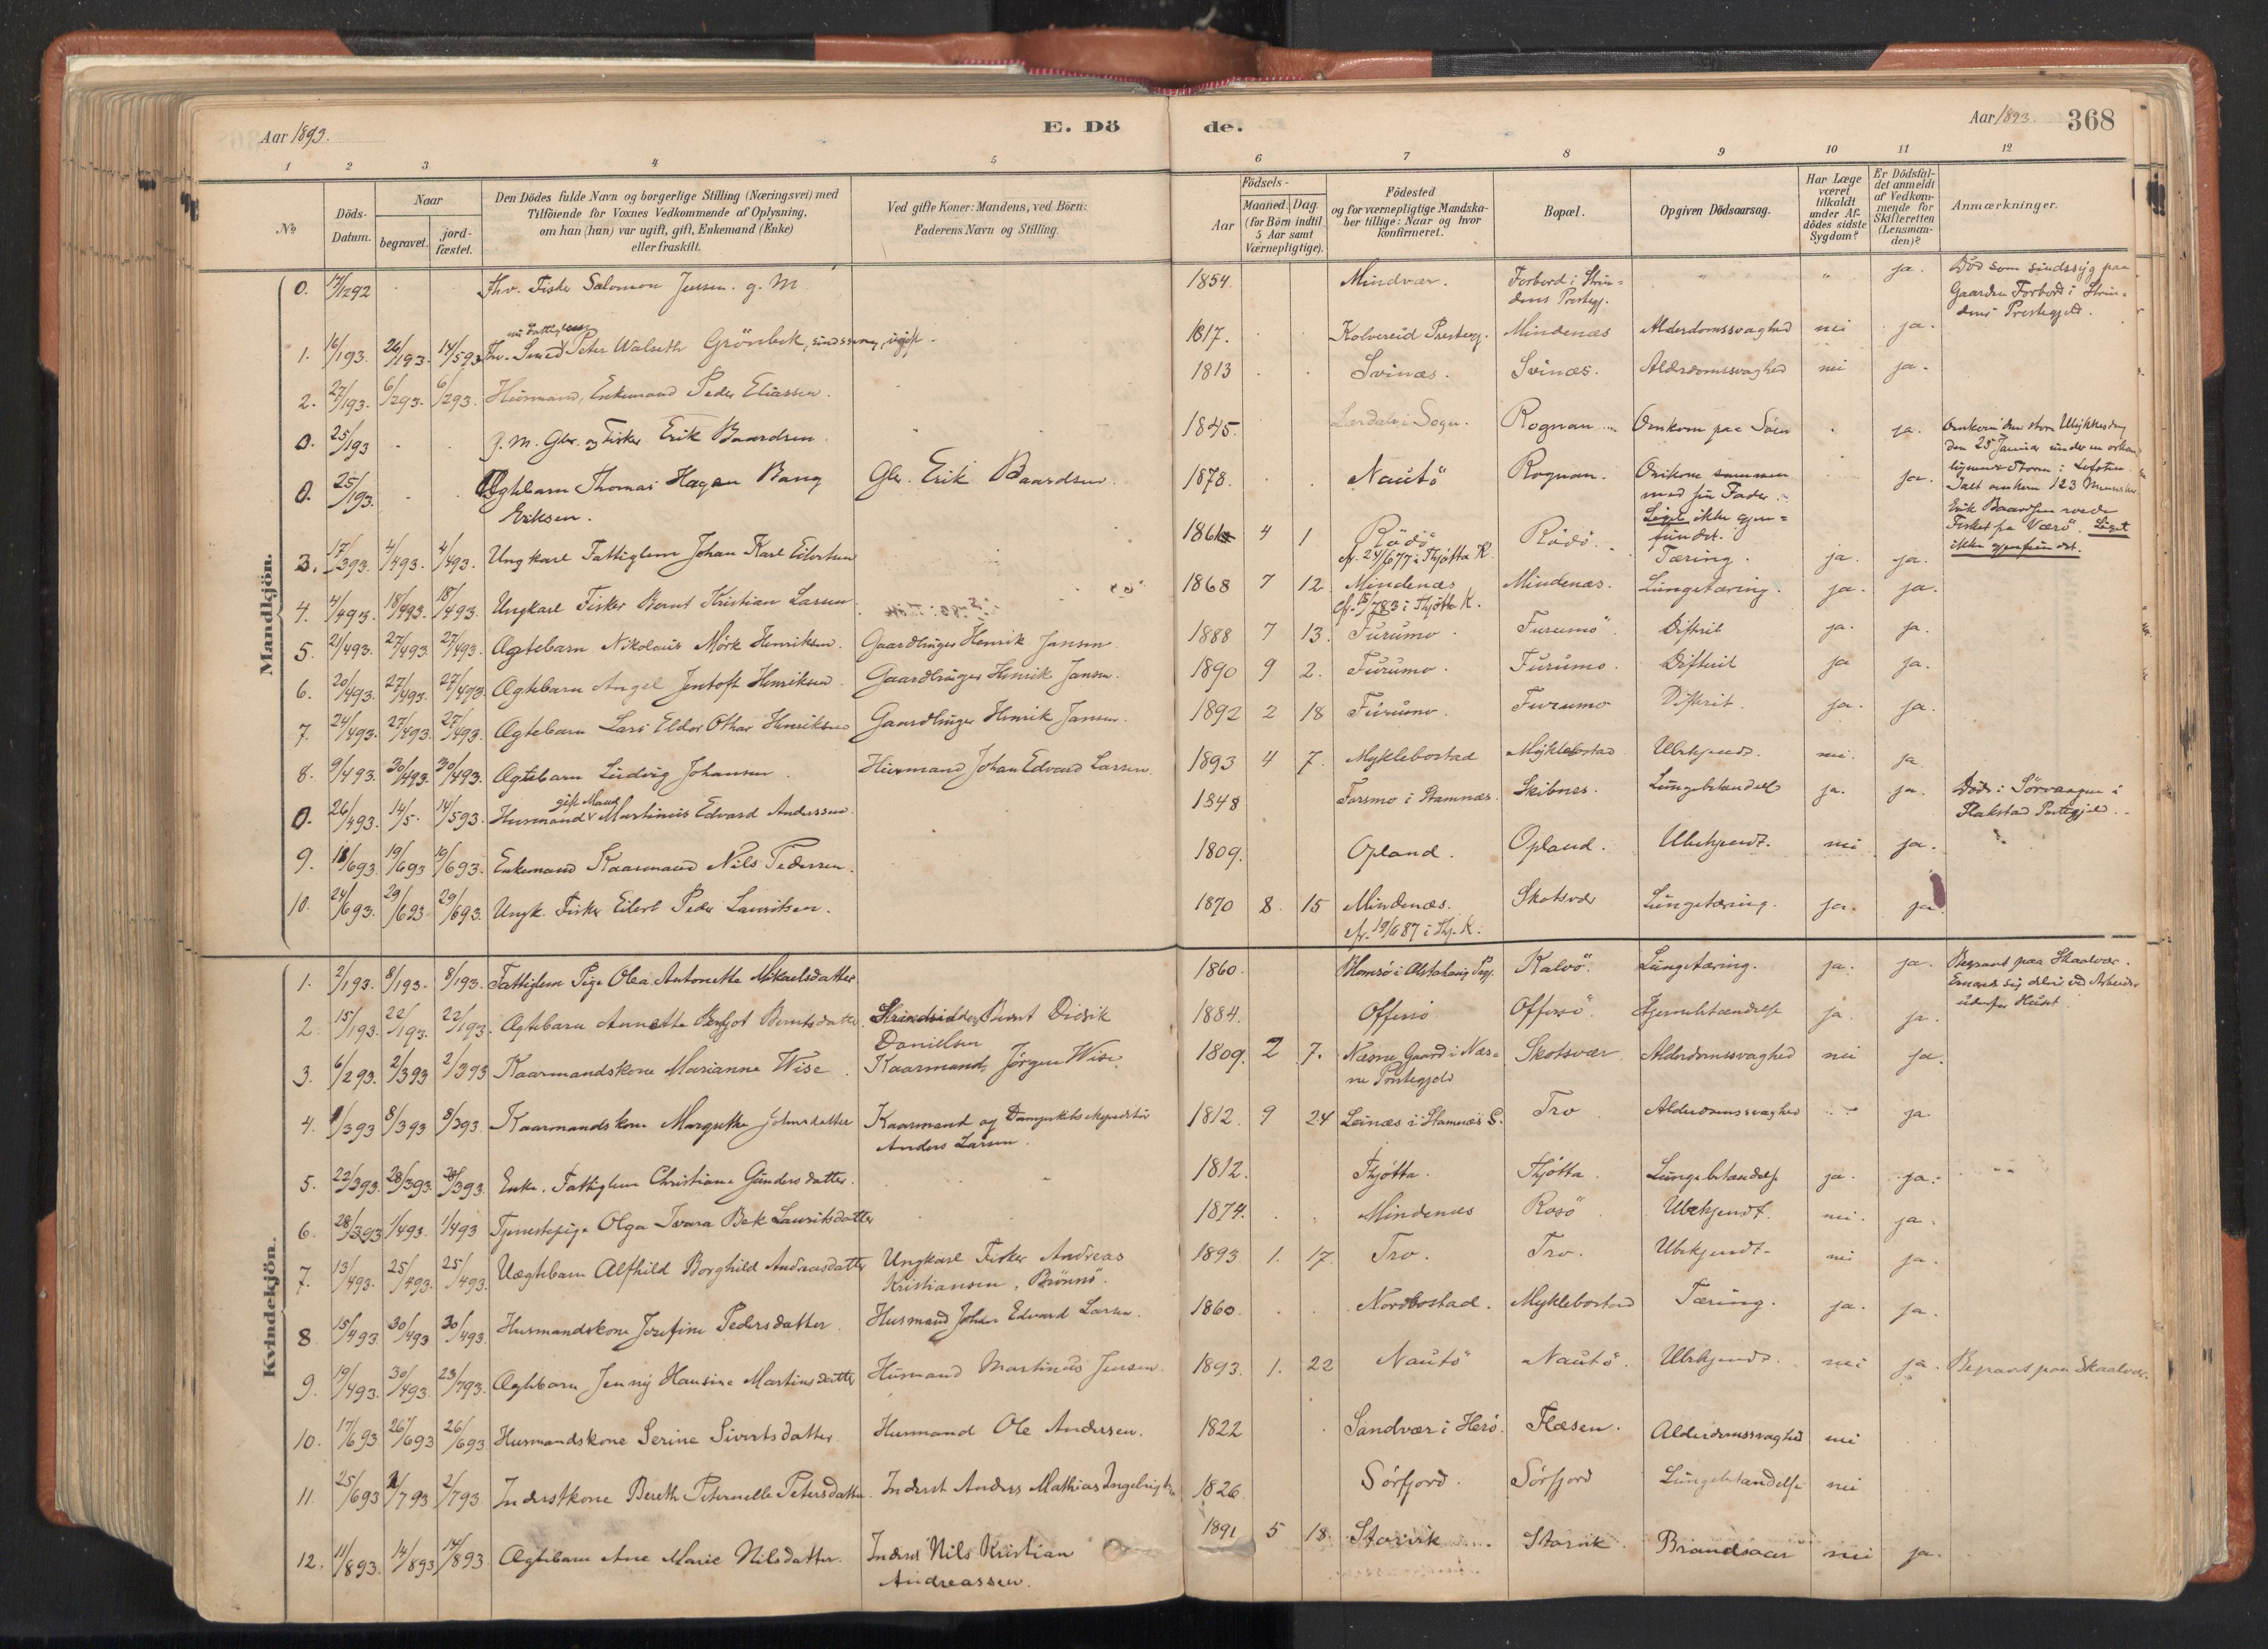 Aar 1893.
E. Dö
de.
Aar 1893
368
1 2 3 4 5 6 7 8 9 10 11 12
No
Döds-Datum.
Naar
begravet.
jord-fæstet.
Den Dödes fulde Navn og borgerlige Stilling (Næringsvei) med
Tilföiende for Voxnes Vedkommende af Oplysning,
om han (hun) var ugift, gift, Enkemand (Enke)
eller fraskilt.
Ved gifte Koner: Mandens, ved Börn:
Faderens Navn og Stilling.
Födsels-
Aar
Maaned. Dag.
(for Börn indtil
5 Aar samt
Værnepligtige).
Födested
og for værnepligtige Mandska-
ber tillige: Naar og hvor
konfirmeret.
Bopæl.
Opgiven Dödsaarsag.
Har Læge
været
tilkaldt
under Af-
dödes sidste
Sygdom?
Er Dödsfal-
det anmeldt
af Vedkom-
mende for
Skifteretten
(Lensman-
den)?
Anmærkninger.
Mandkjön.
0. 17/1292 Fhv. Fisker Salomon Jensen. g. M 1854. Mindvær. Forbord i Strin-
dens Prestegj. " " ja. Död som sindssyg paa
Gaarden Forbord i Strin-
dens Prestegjeld.
1. 16/193. 26/193. 14/593 Fhv. Smed Peter Walseth Grönbek, sindssvag, ugift. 1817. Kolvereid Prestegj. Mindenæs Alderdomssvaghed nei ja.
2. 27/193. 6/293. 6/293. Husmand, Enkemand Peder Eliassen. 1813 Svinæs. Svinæs. Alderdomssvaghed nei ja.
0. 25/193 g. M. Gbr. og Fisker Erik Baardsen 1845. Lærdal i Sogn. Rognan Omkom paa Söen ja. Omkom den store Ulykkesdag
den 25 Januar under en orkan-
lignende Storm i Lofoten.
Ialt omkom 123 Mennesker
Erik Baardsen roede
Fisket på Værö. Liget
ikke gjenfundet.
0. 25/193. Ægtebarn Thomas Hagen Bang
Eriksen. Gbr. Erik Baardsen. 1878. Nautö Rognan. Omkom sammen
med sin Fader.
Liget ikke gjen-
fundet. ja.
3. 17/393. 4/493. 4/493. Ungkarl Fattiglem Johan Karl Eilertsen 186 4 1 Rödö
cfr. 24/677 i Thjötta K. Rödö. Tæring. ja. ja.
4. 4/493. 18/493. 18/493. Ungkarl Fisker Bernt Kristian Larsen 1868 7 12 Mindenæs
cfr. 15/783 i Thjötta K. Mindenæs. Lungetæring. ja. ja.
5. 21/493. 27/493. 27/493. Ægtebarn Nikolaus Mörk Henriksen. Gaardbruger Henrik Jansen 1888 7 13. Furumo. Furumo. Difterit ja. ja.
6. 20/493. 27/493. 27/493. Ægtebarn Angel Jentoft Henriksen. Gaardbruger Henrik Jansen. 1890 9 2. Furumo. Furumo. Difterit ja ja.
7. 24/493. 27/493. 27/493. Ægtebarn Lars Eldor Othar Henriksen Gaardbruger Henrik Jansen. 1892 2 18 Furumo. Furumo Difterit. ja. ja.
8. 9/493. 30/493. 30/493. Ægtebarn Ludvig Johansen. Husmand Johan Edvard Larsen. 1893 4 7. Myklebostad Myklebostad Ubekjendt. nei. ja
0. 26/493. 14/5. 14/593. Husmand gift Mand Martinus Edvard Anderssen. 1848 Forsmo i Stamnæs. Skibnes. Lungebetændelse ja. ja. Död i Sörvaagen i
Flakstad Prestegjeld.
9. 11/693. 19/693 19/693. Enkemand Kaarmand Nils Pedersen. 1809. Opland. Opland. Ubekjendt. nei ja.
10. 24/693. 29/693 29/693. Ungk. Fisker Eilert Peder Lauritsen. 1870 8. 15 Mindenæs.
cfr. 19/687 i Thj. K. Skotsvær Lungetæring. ja. ja.
Kvindekjön.
1. 2/193. 8/193. 8/193. Fattiglem Pige Olea Antonette Mikaelsdatter 1860. Blomsö i Alstahaug Pgj. Kalvö. Lungetæring. ja. ja. Begravet paa Skaalvær.
2. 15/193. 22/193. 22/193. Ægtebarn Annette Bergjot Berntsdatter. Strandsidder Bernt Didrik
Danielsen 1884. Offersö Offersö. Hjernebetændelse ja. ja.
3. 6/293. 2/393 2/393 Kaarmandskone Marianne Wise. Kaarmand Jörgen Wise 1809. 2 7. Næsne Gaard i Næs-
ne Prestegjeld Skotsvær Alderdomssvaghed nei ja.
4. 1/393 8/393 8/393. Kaarmandskone Margrethe Johnsdatter Kaarmand og Dampskibsexpeditör
Anders Larsen. 1812. 9 24 Leinæs i Stamnæs S. Tro Alderdomssvaghed ja
5. 22/393. 28/393. 28/393. Enke. Fattiglem Christiane Gundersdatter. 1812. Thjötta. Thjötta. Lungebetændelse ja. ja.
6. 28/393 1/493. 1/493 Tjenestepige Olga Ivara Bek Lauritsdatter 1874. Mindenæs Rosö Ubekjendt. nei. ja.
7. 13/493. 25/493. 25/493. Uægtebarn Alfhild Borghild Andreasdatter Ungkarl Fisker Andreas
Kristiansen, Brönnö. 1893 1. 17. Tro. Tro. Ubekjendt. nei ja.
8 15/493 30/493 30/493. Husmandskone Josefine Pedersdatter. Husmand Johan Edvard Larsen. 1860. Nordbostad. Myklebostad Tæring. ja. ja.
9. 19/493. 30/493. 23/793. Ægtebarn Jenny Hansine Martinsdatter Husmand Martinus Jensen. 1893. 1. 22 Nautö Nautö. Ubekjendt. nei ja. Begravet paa Skaalvær.
10. 17/693. 26/693 26/693 Husmandskone Serine Sivertsdatter. Husmand Ole Andersen. 1822 Sandvær i Herö. Flæsen. Alderdomssvaghed nei
11. 25/693 2/793 2/793. Inderstkone Bereth Peternelle Petersdatter. Inderst Anders Mathias Ingebrigtsen 1826 Sörfjord. Sörfjord Lungebetændelse nei
12. 11/893. 14/893 14/893 Ægtebarn Ane Marie Nilsdatter. Inderst Nils Kristian
Andreassen. 1891 5 18. Storvik Storvik. Brandsaar nei ja.